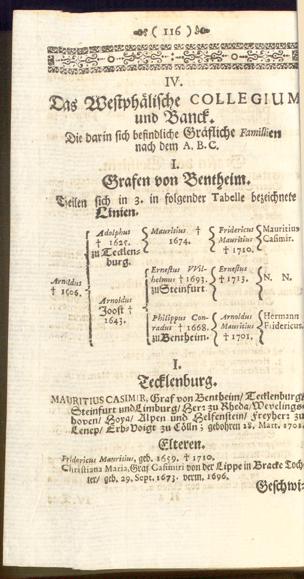 ( 116 )
IV.
Das Westphälische COLLEGIUM
und Banck.
Die darin sich befindliche Gräfliche Familien
nach dem A. B. C.
I.
Grafen von Bentheim.
Theilen sich in 3. in folgender Tabelle bezeichnete
Linien.
Arnoldus
† 1606.
Adolphus
† 1625.
zu Tecklen-
burg.
Mauritius †
1674.
Fridericus
Mauritius
† 1710.
Mauritius
Casimir.
Arnoldus
Joost †
1643.
Ernestus Wil-
helmus † 1693.
zu Steinfurt
Ernestus
† 1713.
N. N.
Philippus Con-
radus † 1668.
zu Bentheim.
Arnoldus
Mauritius
† 1701.
Hermann
Fridericus
I.
Tecklenburg.
MAURITIUS CASIMIR, Graf von Bentheim/ Tecklenburg/
Steinfurt und Limburg/ Herr zu Rheda/ Wevelings-
hoven/ Hoya/ Alpen und Helfenstein/ Freyherr zu
Lenep/ Erb-Voigt zu Cölln; gebohren 28. Mart. 1701
Elteren.
Fridericus Mauritius, geb. 1659. † 1710.
Christiana Maria, Graf Casimiri von der Lippe in Bracke Toch-
ter/ geb. 29. Sept. 1673. verm. 1696.
Geschwi-